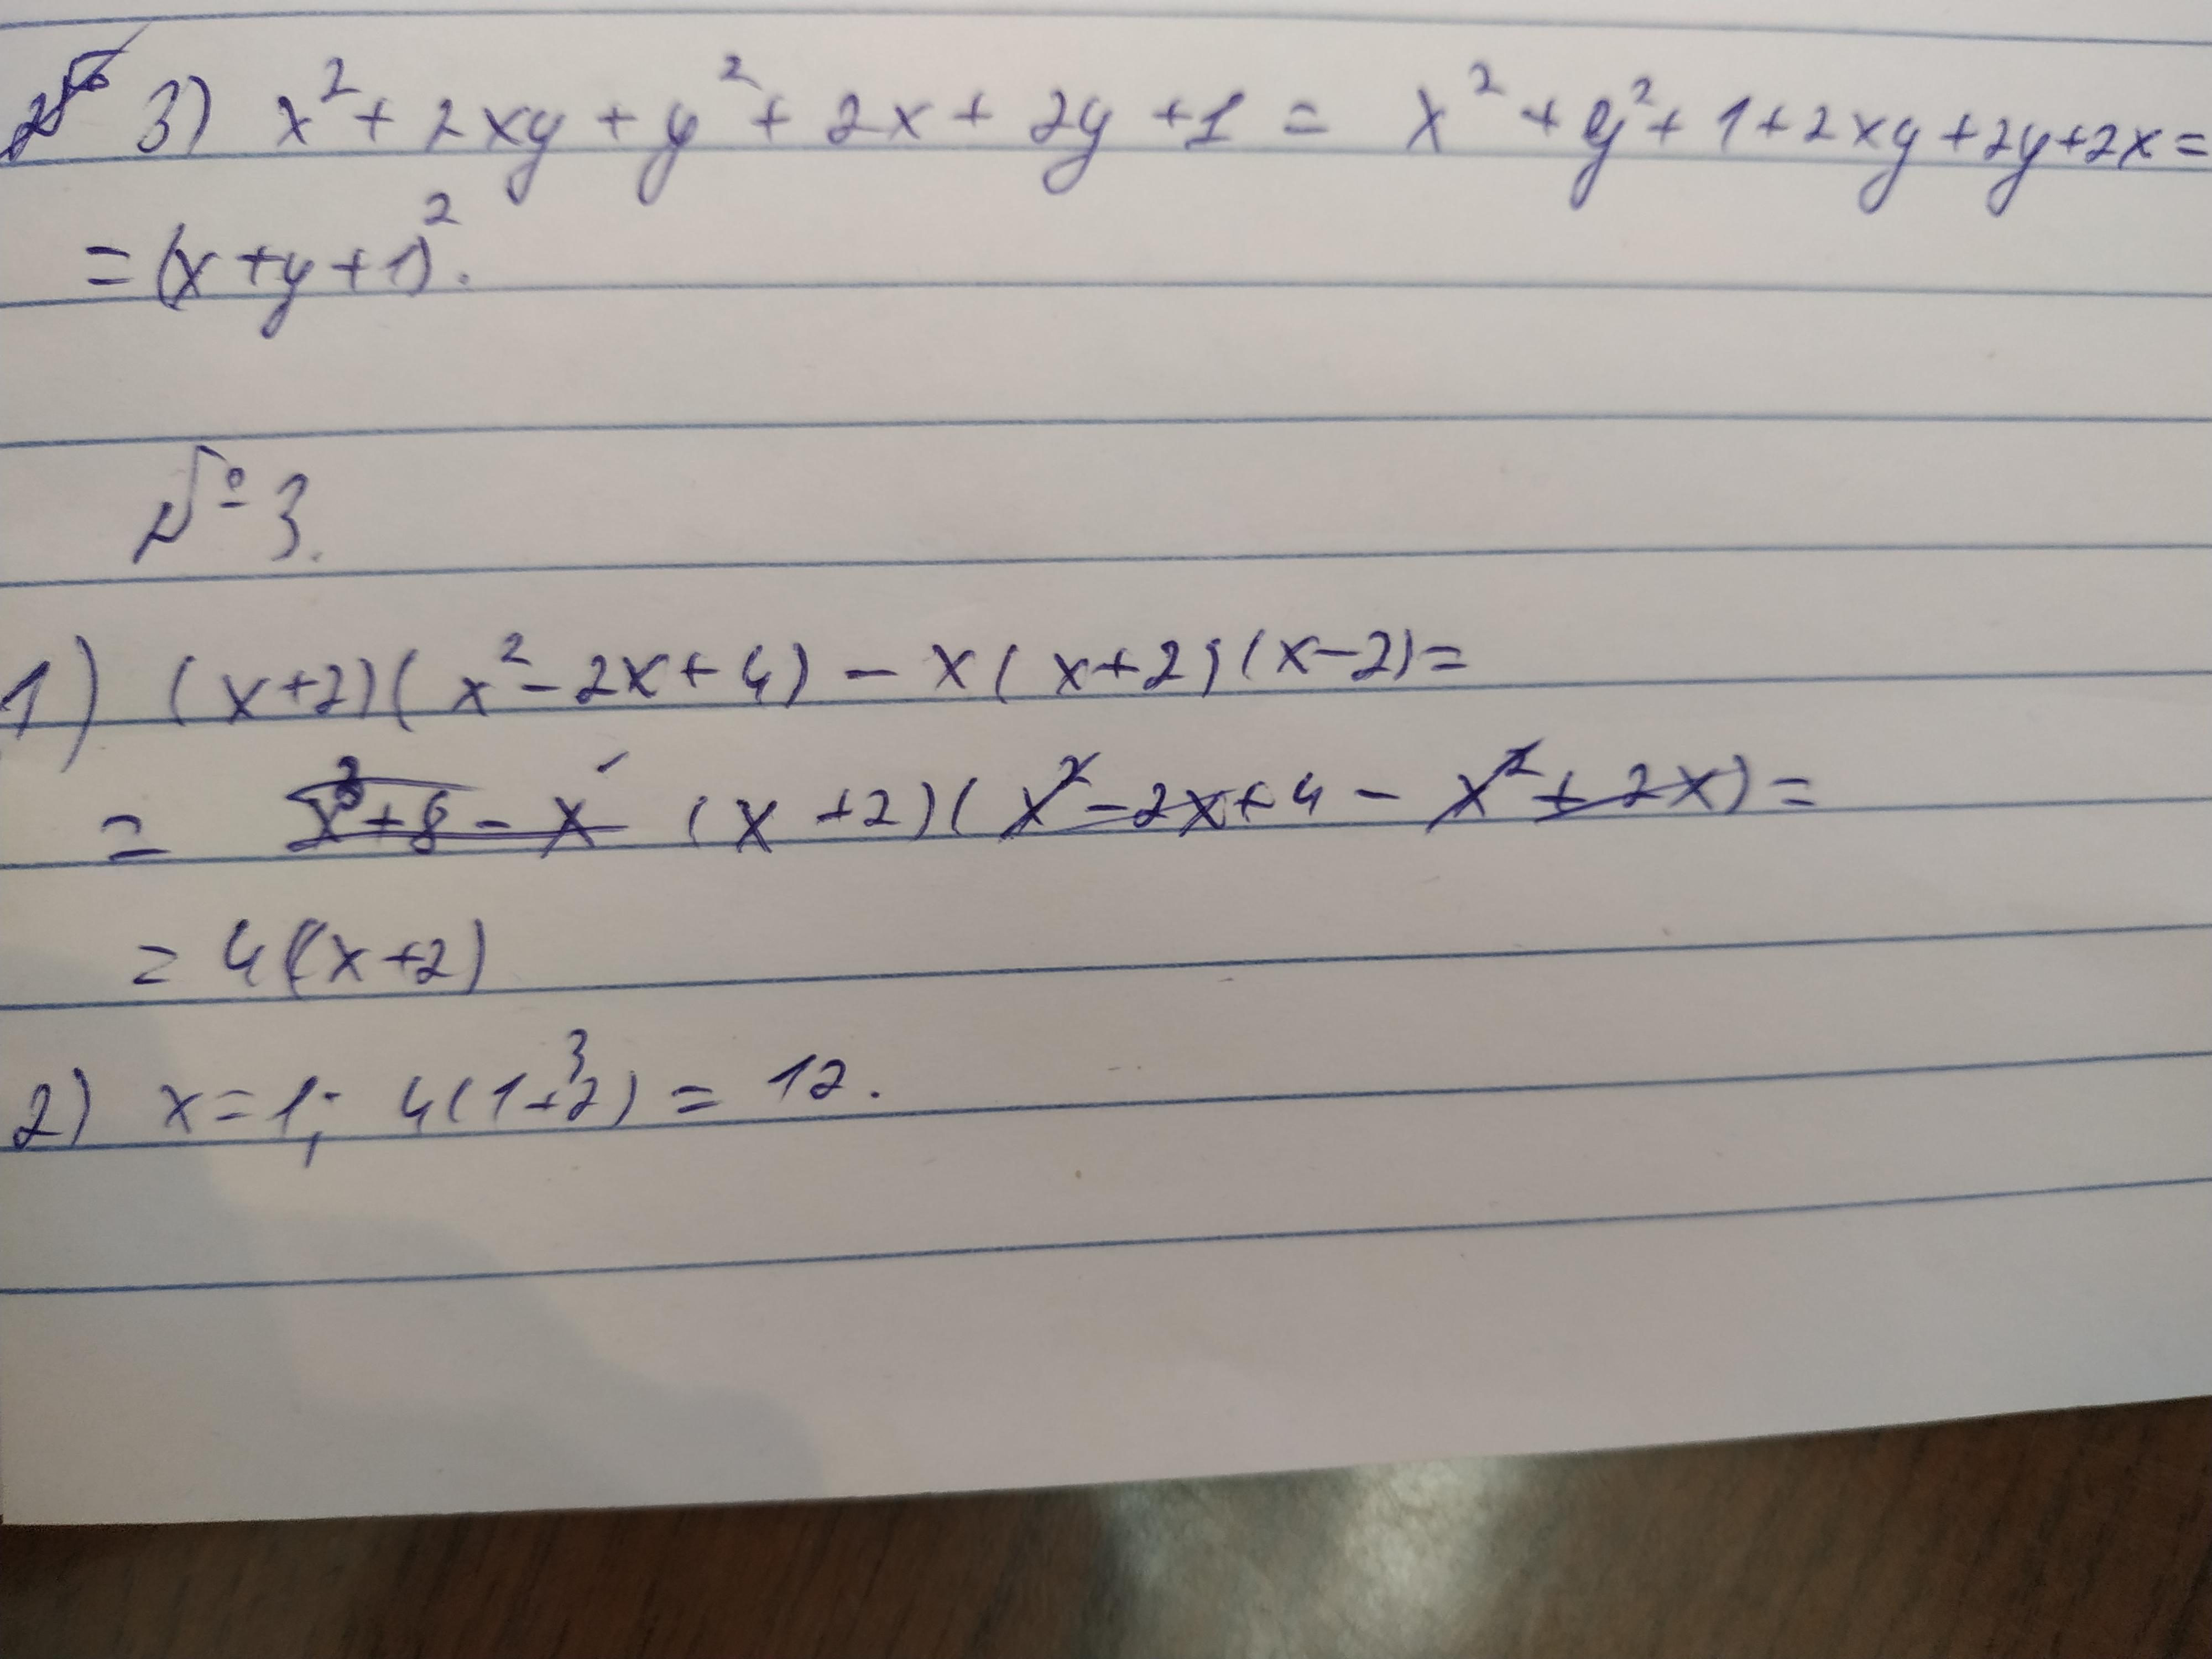 № 3) x² + 2xy + y² + 2x + 2y + 1 = x² + y² + 1 + 2xy + 2y + 2x =
= (x + y + 1)².
№ 3.
1) (x+2)(x² - 2x + 4) - x(x+2)(x-2) =
= x³ + 8 - x (x+2)(x² - 2x + 4 - x² + 2x) =
= 4(x+2)
2) x = 1; 4(1+2)³ = 12.